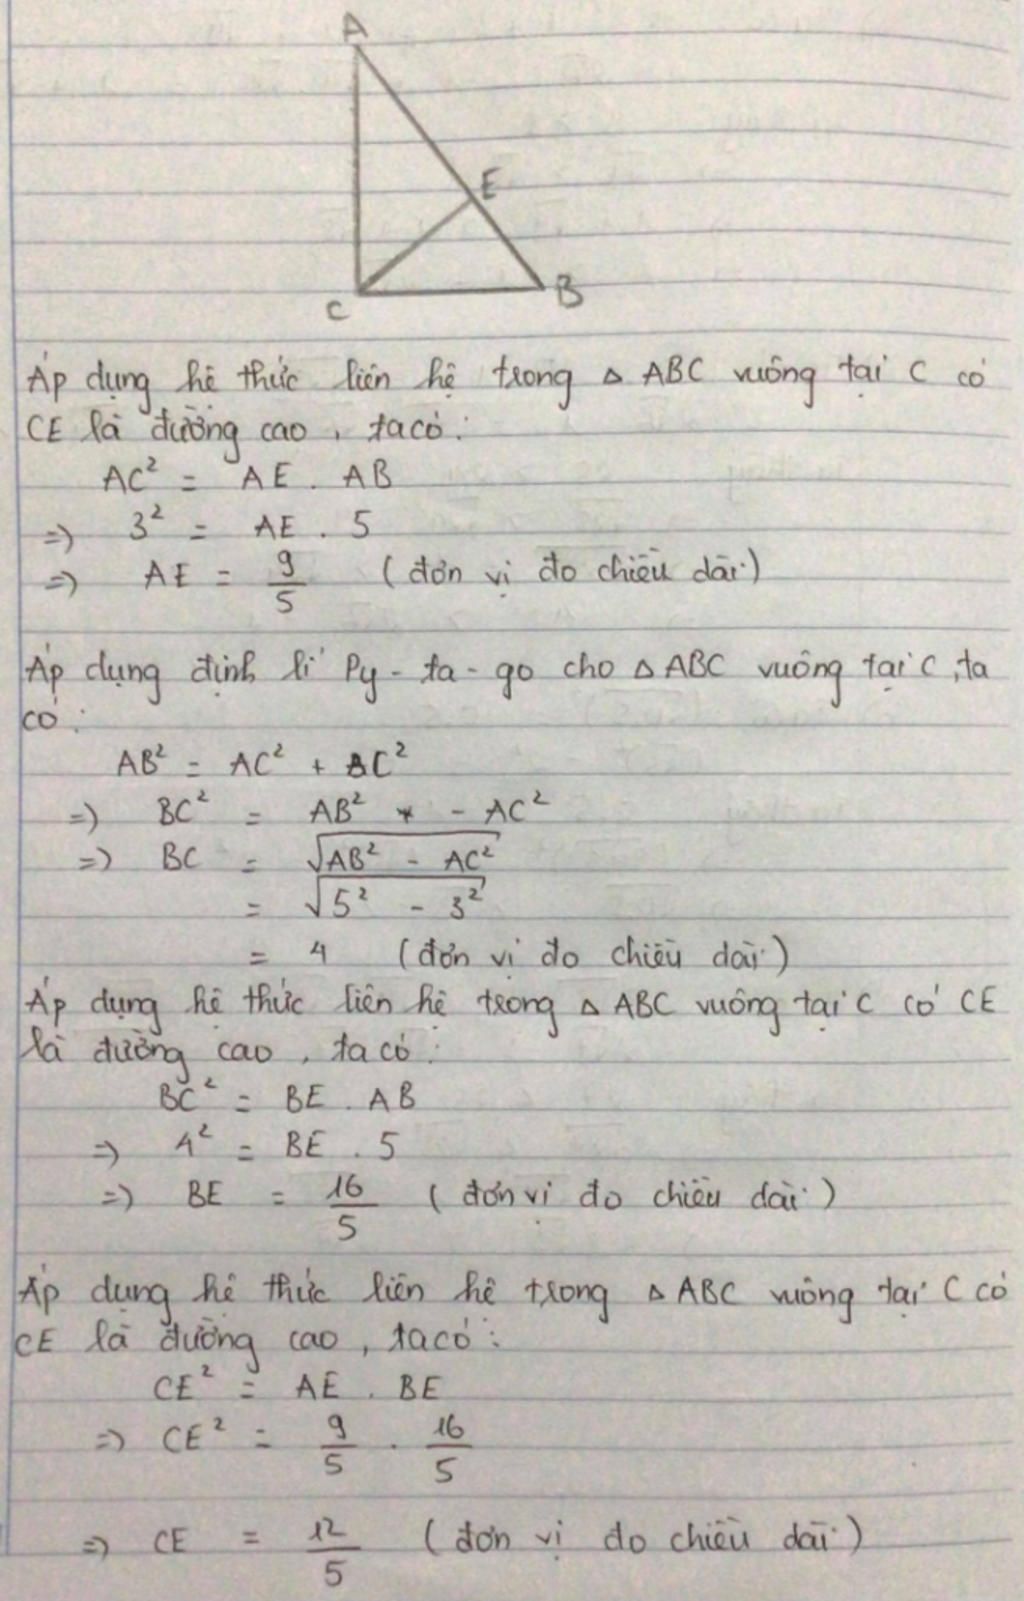 A
E
C
B
Áp dụng hệ thức liên hệ trong Δ ABC vuông tại C có
CE là đường cao, ta có:
AC² = AE . AB
=> 3² = AE . 5
=> AE = 9/5 (đơn vị đo chiều dài)
Áp dụng định lí Py-ta-go cho Δ ABC vuông tại C, ta
có:
AB² = AC² + BC²
=> BC² = AB² - AC²
=> BC = √(AB² - AC²)
= √(5² - 3²)
= 4 (đơn vị đo chiều dài)
Áp dụng hệ thức liên hệ trong Δ ABC vuông tại C có CE
là đường cao, ta có:
BC² = BE . AB
=> 4² = BE . 5
=> BE = 16/5 (đơn vị đo chiều dài)
Áp dụng hệ thức liên hệ trong Δ ABC vuông tại C có
CE là đường cao, ta có:
CE² = AE . BE
=> CE² = 9/5 . 16/5
=> CE = 12/5 (đơn vị đo chiều dài)